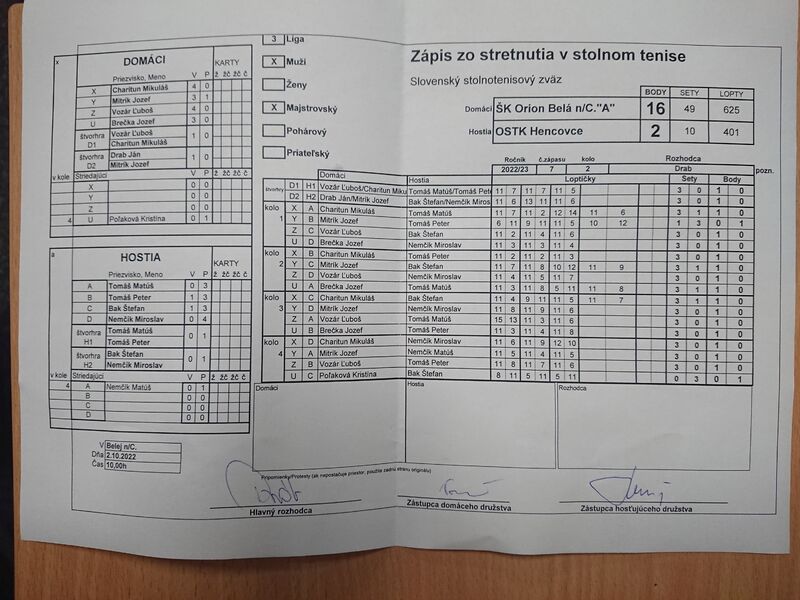 3 Liga
X Muži
Ženy
X Majstrovský
Pohárový
Priateľský
Zápis zo stretnutia v stolnom tenise
Slovenský stolnotenisový zväz
BODY SETY LOPTY
Domáci ŠK Orion Belá n/C."A" 16 49 625
Hostia OSTK Hencovce 2 10 401
x DOMÁCI KARTY
Priezvisko, Meno V P ž žč žč č
X Charitun Mikuláš 4 0
Y Mitrík Jozef 3 1
Z Vozár Ľuboš 4 0
U Brečka Jozef 3 0
štvorhra D1 Vozár Ľuboš 1 0
Charitun Mikuláš
štvorhra D2 Drab Ján 1 0
Mitrík Jozef
v kole Striedajúci V P ž žč žč č
X 0 0
Y 0 0
Z 0 0
4 U Poľaková Kristína 0 1
a HOSTIA KARTY
Priezvisko, Meno V P ž žč žč č
A Tomáš Matúš 0 3
B Tomáš Peter 1 3
C Bak Štefan 1 3
D Nemčík Miroslav 0 4
štvorhra H1 Tomáš Matúš 0 1
Tomáš Peter
štvorhra H2 Bak Štefan 0 1
Nemčík Miroslav
v kole Striedajúci V P ž žč žč č
4 A Nemčík Matúš 0 1
B 0 0
C 0 0
D 0 0
V Belej n/C.
Dňa 2.10.2022
Čas 10,00h
Ročník č.zápasu kolo Rozhodca
2022/23 7 2 Drab pozn.
Domáci Hostia Loptičky Sety Body
štvorhry D1 H1 Vozár Ľuboš/Charitun Miku Tomáš Matúš/Tomáš Pete 11 7 11 7 11 5 3 0 1 0
D2 H2 Drab Ján/Mitrík Jozef Bak Štefan/Nemčík Miros 11 6 13 11 11 6 3 0 1 0
kolo 1 X A Charitun Mikuláš Tomáš Matúš 11 7 11 2 12 14 11 6 3 1 1 0
Y B Mitrík Jozef Tomáš Peter 6 11 9 11 11 5 10 12 1 3 0 1
Z C Vozár Ľuboš Bak Štefan 11 2 11 4 11 6 3 0 1 0
U D Brečka Jozef Nemčík Miroslav 11 3 11 3 11 4 3 0 1 0
kolo 2 X B Charitun Mikuláš Tomáš Peter 11 2 11 2 11 3 3 0 1 0
Y C Mitrík Jozef Bak Štefan 11 7 11 8 10 12 11 9 3 1 1 0
Z D Vozár Ľuboš Nemčík Miroslav 11 4 11 5 11 7 3 0 1 0
U A Brečka Jozef Tomáš Matúš 11 3 11 8 5 11 11 8 3 1 1 0
kolo 3 X C Charitun Mikuláš Bak Štefan 11 4 9 11 11 5 11 7 3 1 1 0
Y D Mitrík Jozef Nemčík Miroslav 11 8 11 9 11 6 3 0 1 0
Z A Vozár Ľuboš Tomáš Matúš 15 13 11 3 11 6 3 0 1 0
U B Brečka Jozef Tomáš Peter 11 3 11 4 11 8 3 0 1 0
kolo 4 X D Charitun Mikuláš Nemčík Miroslav 11 6 11 9 12 10 3 0 1 0
Y A Mitrík Jozef Nemčík Matúš 11 5 11 4 11 5 3 0 1 0
Z B Vozár Ľuboš Tomáš Peter 11 8 11 7 11 6 3 0 1 0
U C Poľaková Kristína Bak Štefan 8 11 5 11 5 11 0 3 0 1
Domáci Hostia Rozhodca
Pripomienky/Protesty (ak nepostačuje priestor, použite zadnú stranu originálu)
Hlavný rozhodca
Zástupca domáceho družstva
Zástupca hosťujúceho družstva